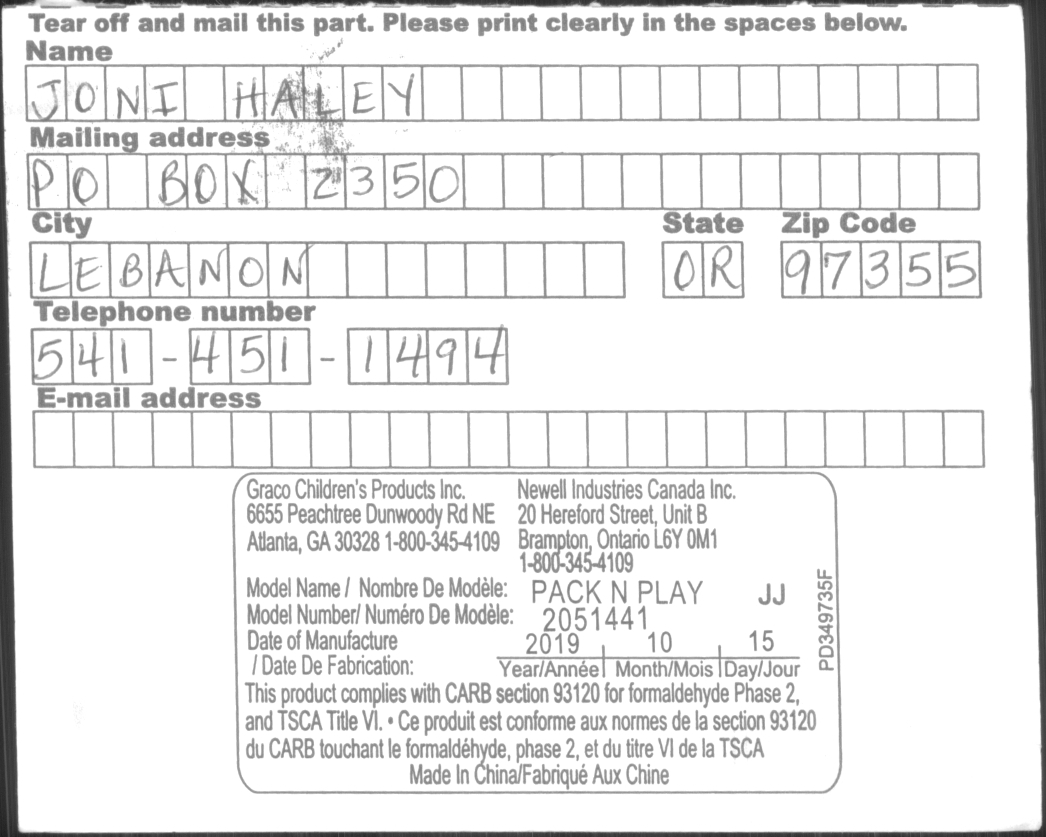 Tear off and mail this part. Please print clearly in the spaces below.
Name
JONI HALEY
Mailing address
PO BOX 2350
City State Zip Code
LEBANON OR 97355
Telephone number
541 - 451 - 1494
E-mail address
Graco Children's Products Inc. Newell Industries Canada Inc.
6655 Peachtree Dunwoody Rd NE 20 Hereford Street, Unit B
Atlanta, GA 30328 1-800-345-4109 Brampton, Ontario L6Y 0M1
1-800-345-4109
Model Name / Nombre De Modèle: PACK N PLAY JJ
Model Number/ Numéro De Modèle: 2051441
Date of Manufacture 2019 10 15
/ Date De Fabrication: Year/Année Month/Mois Day/Jour
PD349735F
This product complies with CARB section 93120 for formaldehyde Phase 2,
and TSCA Title VI. • Ce produit est conforme aux normes de la section 93120
du CARB touchant le formaldéhyde, phase 2, et du titre VI de la TSCA
Made In China/Fabriqué Aux Chine